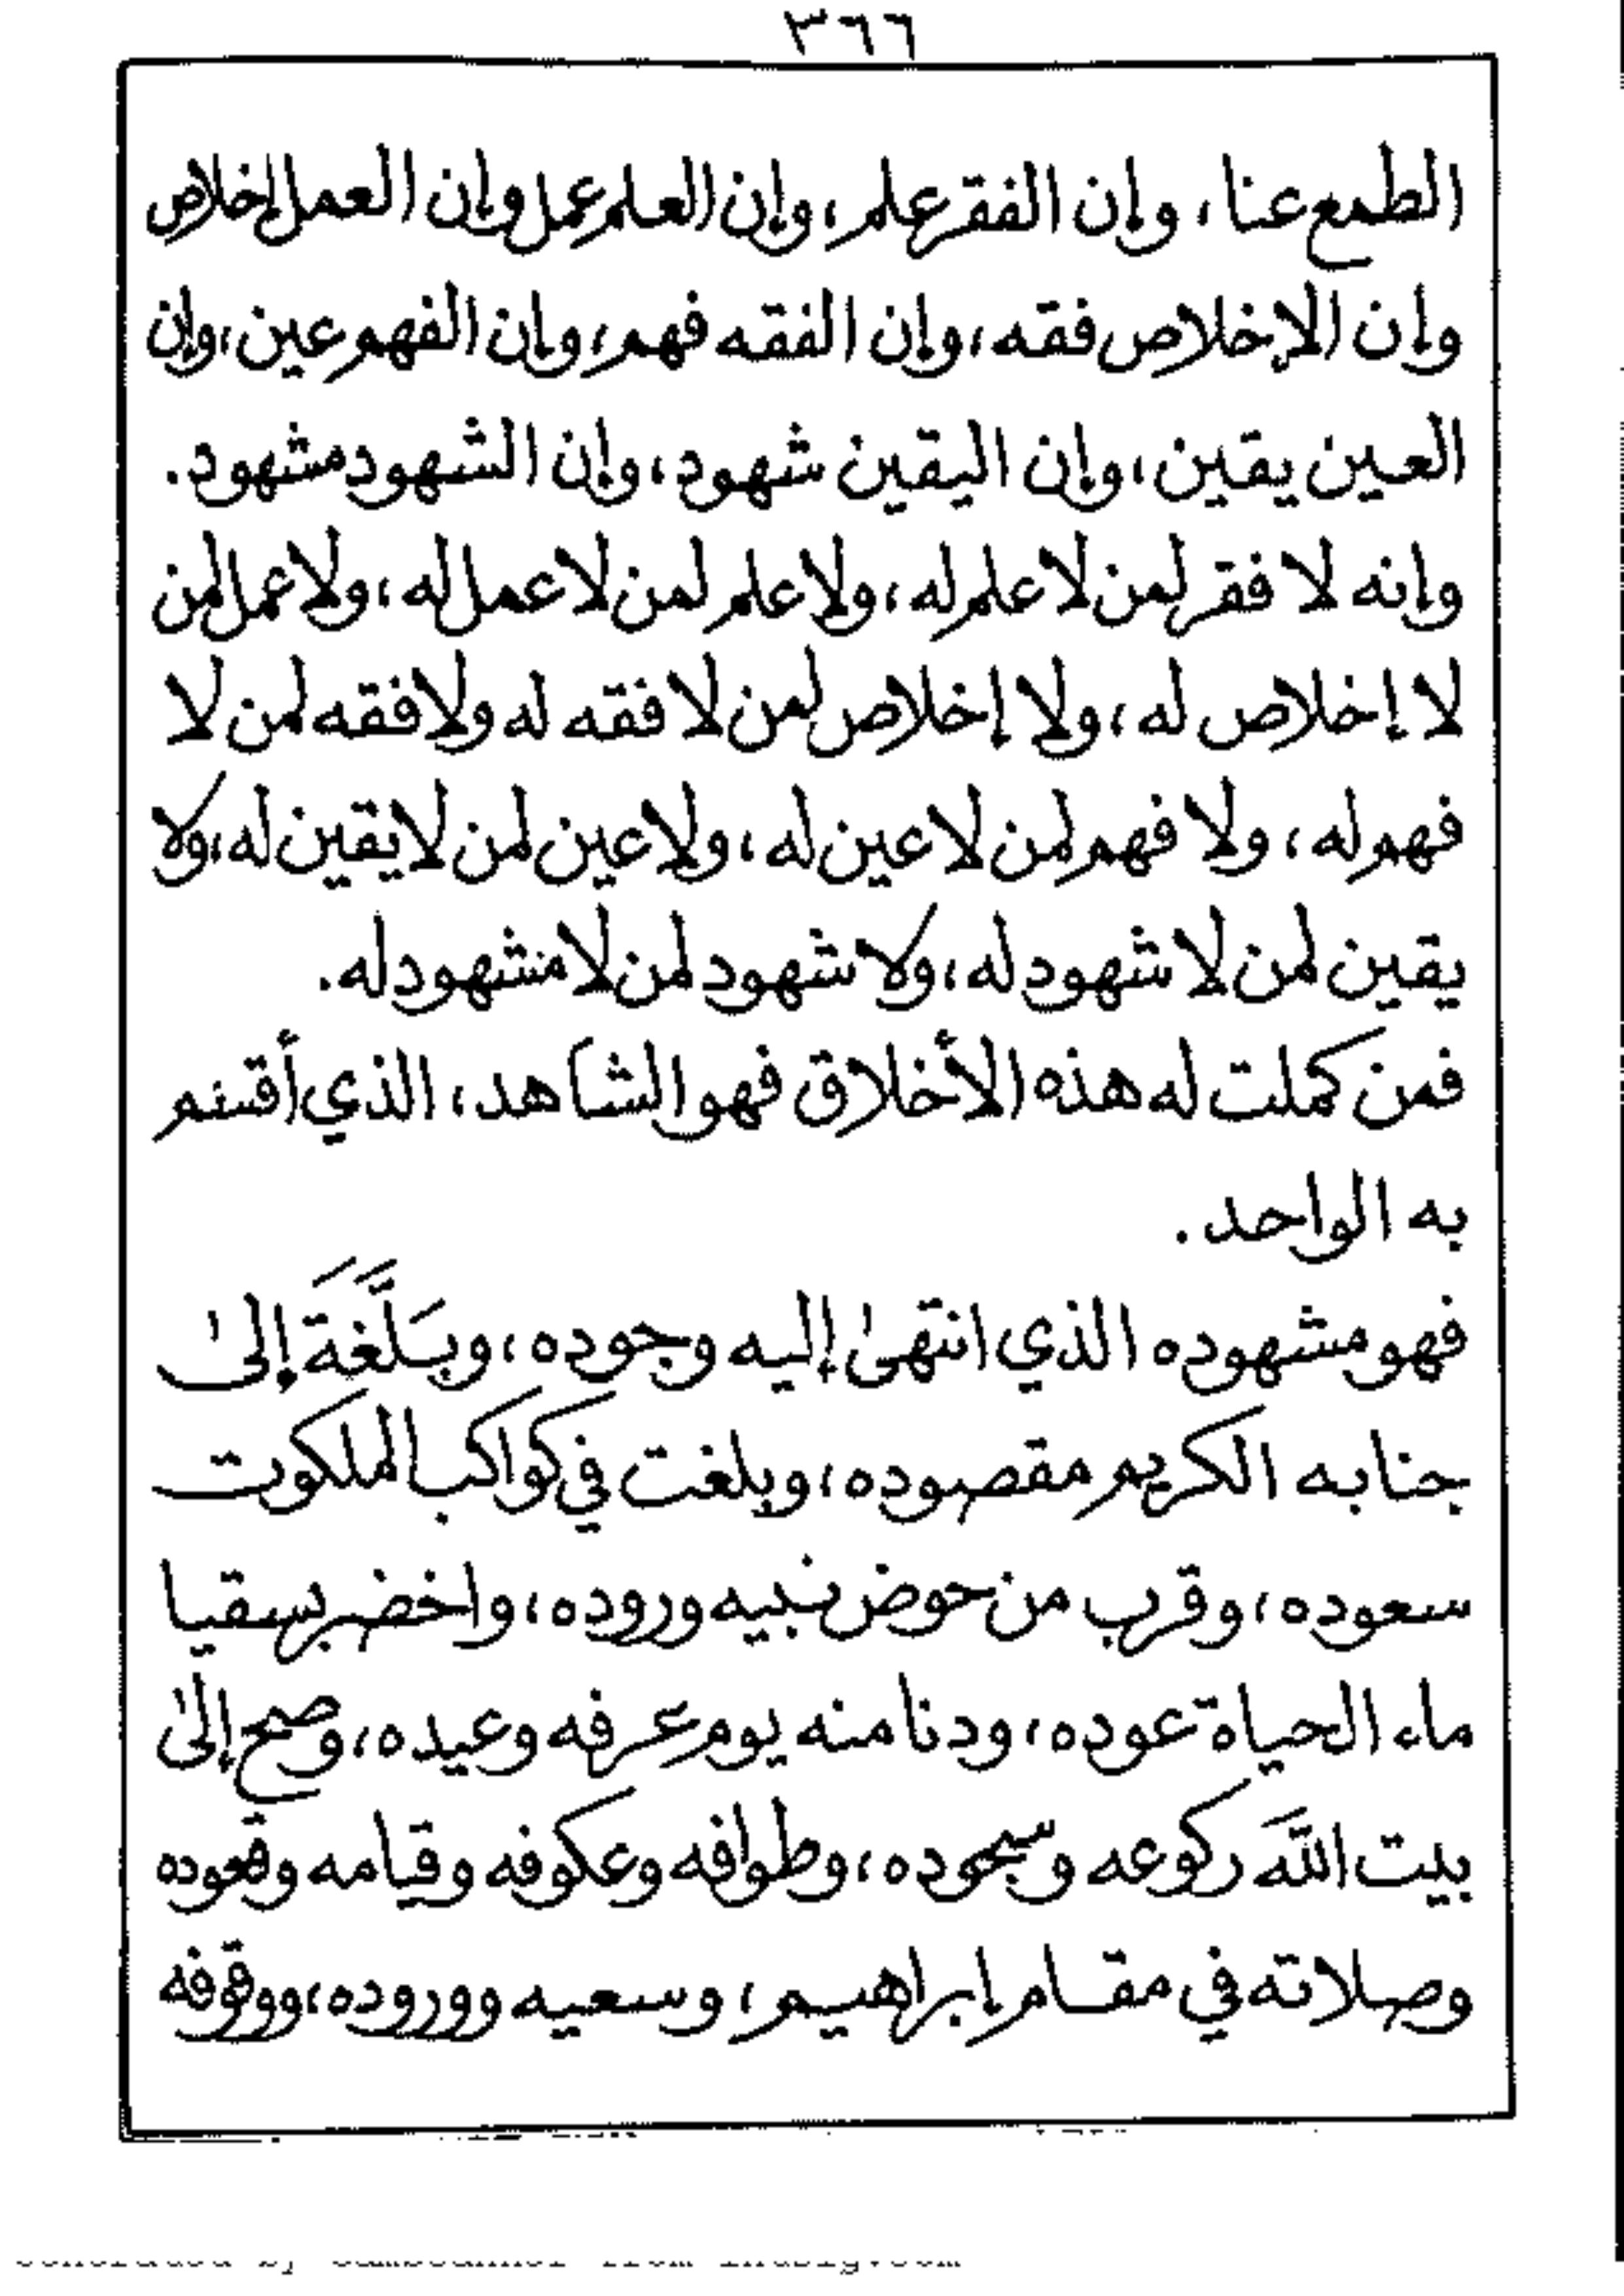 ٣٦٦
الطمع عنا، وإن الفقر علم، وإن العلم عمل وإن العمل إخلاص
وإن الإخلاص فقه، وإن الفقه فهم، وإن الفهم عين، وإن
العين يقين، وإن اليقين شهود، وإن الشهود مشهود.
وإنه لا فقر لمن لا علم له، ولا علم لمن لا عمل له، ولا عمل لمن
لا إخلاص له، ولا إخلاص لمن لا فقه له ولا فقه لمن لا
فهم له، ولا فهم لمن لا عين له، ولا عين لمن لا يقين له، ولا
يقين لمن لا شهود له، ولا شهود لمن لا مشهود له.
فمن كملت له هذه الأخلاق فهو الشاهد، الذي أقسم
به الواحد.
فهو مشهوده الذي انتهىٰ إليه وجوده، وبَلَّغَهَ إلىٰ
جنابه الكريم مقصوده، وبلغت في كواكب الملكوت
سعوده، وقرب من حوض نبيه وروده، واخضر بسقيا
ماء الحياة عوده، ودنا منه يوم عرفه وعيده، وصح إلىٰ
بيت اللَّه ركوعه وسجوده، وطوافه وعكوفه وقيامه وقعوده
وصلاته في مقام إبراهيم، وسعيه ووروده، ووقوفه